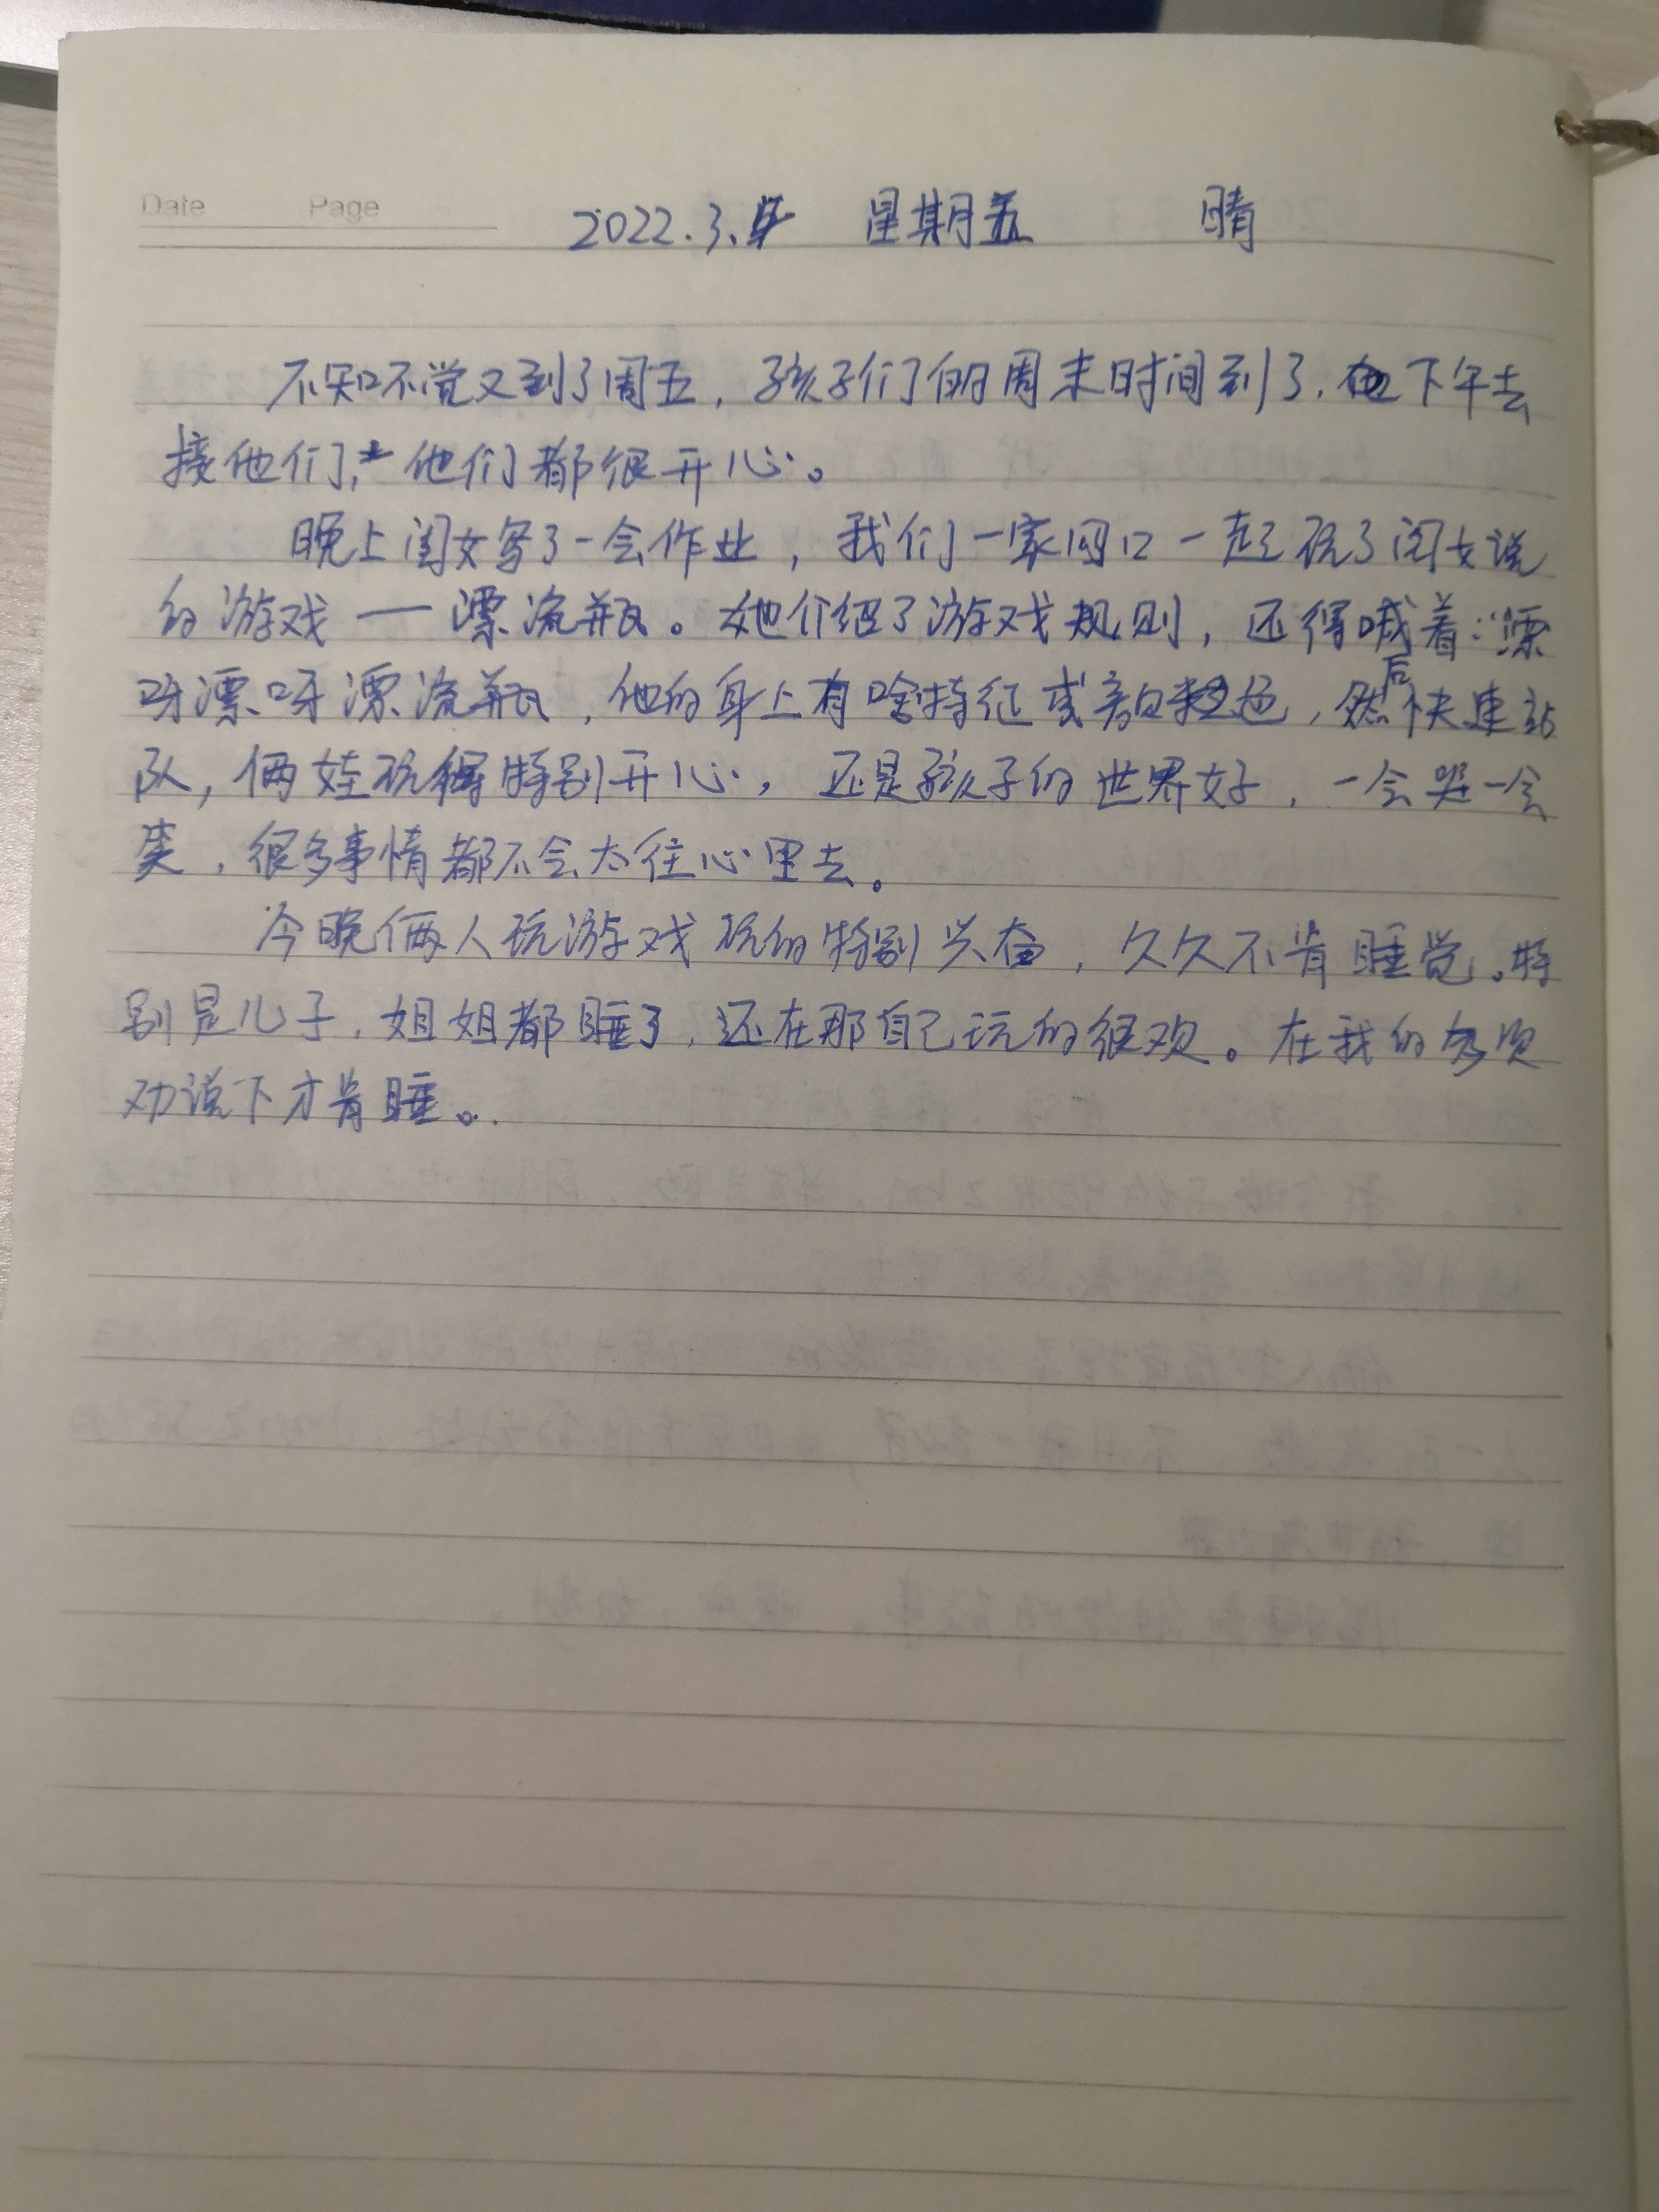 Date Page
2022.3.4 星期五 晴
不知不觉又到了周五，孩子们的周末时间到了，下午去
接他们，他们都很开心。
晚上闺女写了一会作业，我们一家四口一起玩了闺女说
的游戏——漂流瓶。她介绍了游戏规则，还得喊着：“漂
呀漂呀漂流瓶，他的身上有啥特征或颜色，然后快速站
队，俩娃玩得特别开心，还是孩子的世界好，一会哭一会
笑，很多事情都不会太往心里去。
今晚俩人玩游戏玩的特别兴奋，久久不肯睡觉。特
别是儿子，姐姐都睡了，还在那自己玩的很欢。在我的多次
劝说下才肯睡。